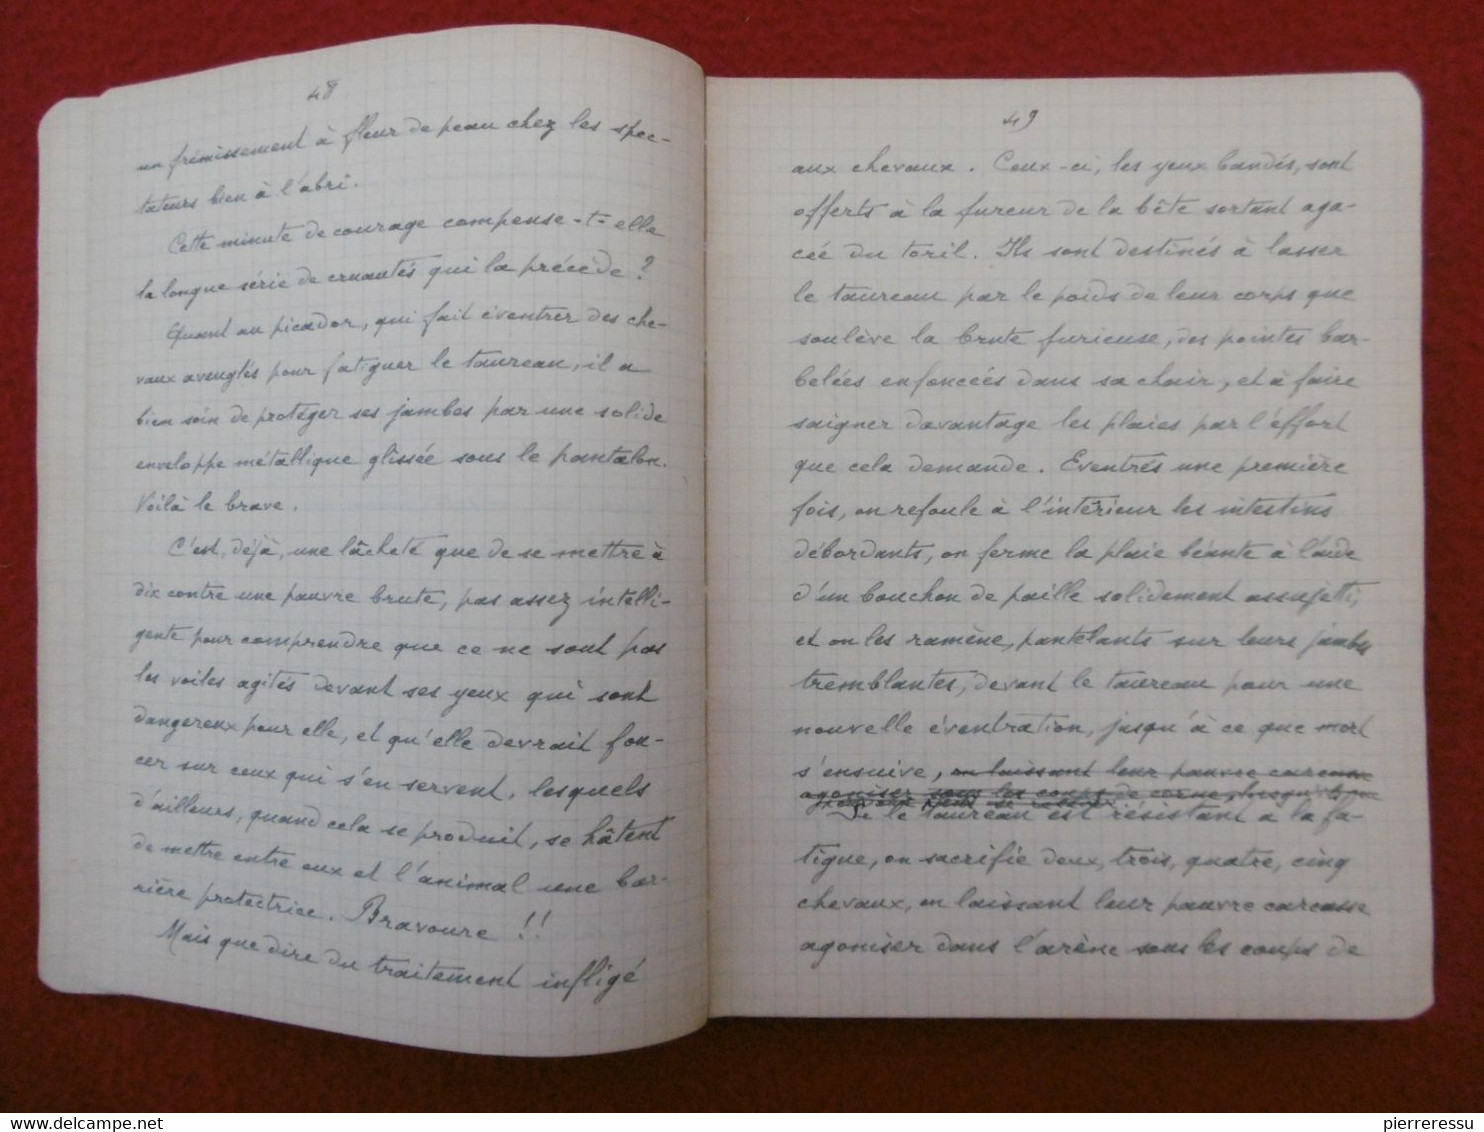 48
un frémissement à fleur de peau chez les spec-
tateurs bien à l'abri.
Cette minute de courage compense-t-elle
la longue série de cruautés qui la précède ?
Quant au picador, qui fait éventrer des che-
vaux aveuglés pour fatiguer le taureau, il a
bien soin de protéger ses jambes par une solide
enveloppe métallique glissée sous le pantalon.
Voilà le brave.
C'est, déjà, une lâcheté que de se mettre à
dix contre une pauvre brute, pas assez intelli-
gente pour comprendre que ce ne sont pas
les voiles agités devant ses yeux qui sont
dangereux pour elle, et qu'elle devrait fon-
cer sur ceux qui s'en servent, lesquels
d'ailleurs, quand cela se produit, se hâtent
de mettre entre eux et l'animal une bar-
rière protectrice. Bravoure !!
Mais que dire du traitement infligé
49
aux chevaux. Ceux-ci, les yeux bandés, sont
offerts à la fureur de la bête sortant aga-
cée du toril. Ils sont destinés à lasser
le taureau par le poids de leur corps que
soulève la brute furieuse, des pointes bar-
belées enfoncées dans sa chair, et à faire
saigner davantage les plaies par l'effort
que cela demande. Eventrés une première
fois, on refoule à l'intérieur les intestins
débordants, on ferme la plaie béante à l'aide
d'un bouchon de paille solidement assujetti,
et on les ramène, pantelants sur leurs jambes
tremblantes, devant le taureau pour une
nouvelle éventration, jusqu'à ce que mort
s'ensuive, en laissant leur pauvre carcasse
agoniser sous les coups de corne, lorsqu'ils ne
peuvent plus se relever
Si le taureau est résistant à la fa-
tigue, on sacrifie deux, trois, quatre, cinq
chevaux, en laissant leur pauvre carcasse
agoniser dans l'arène sous les coups de
www.delcampe.net
pierreressu